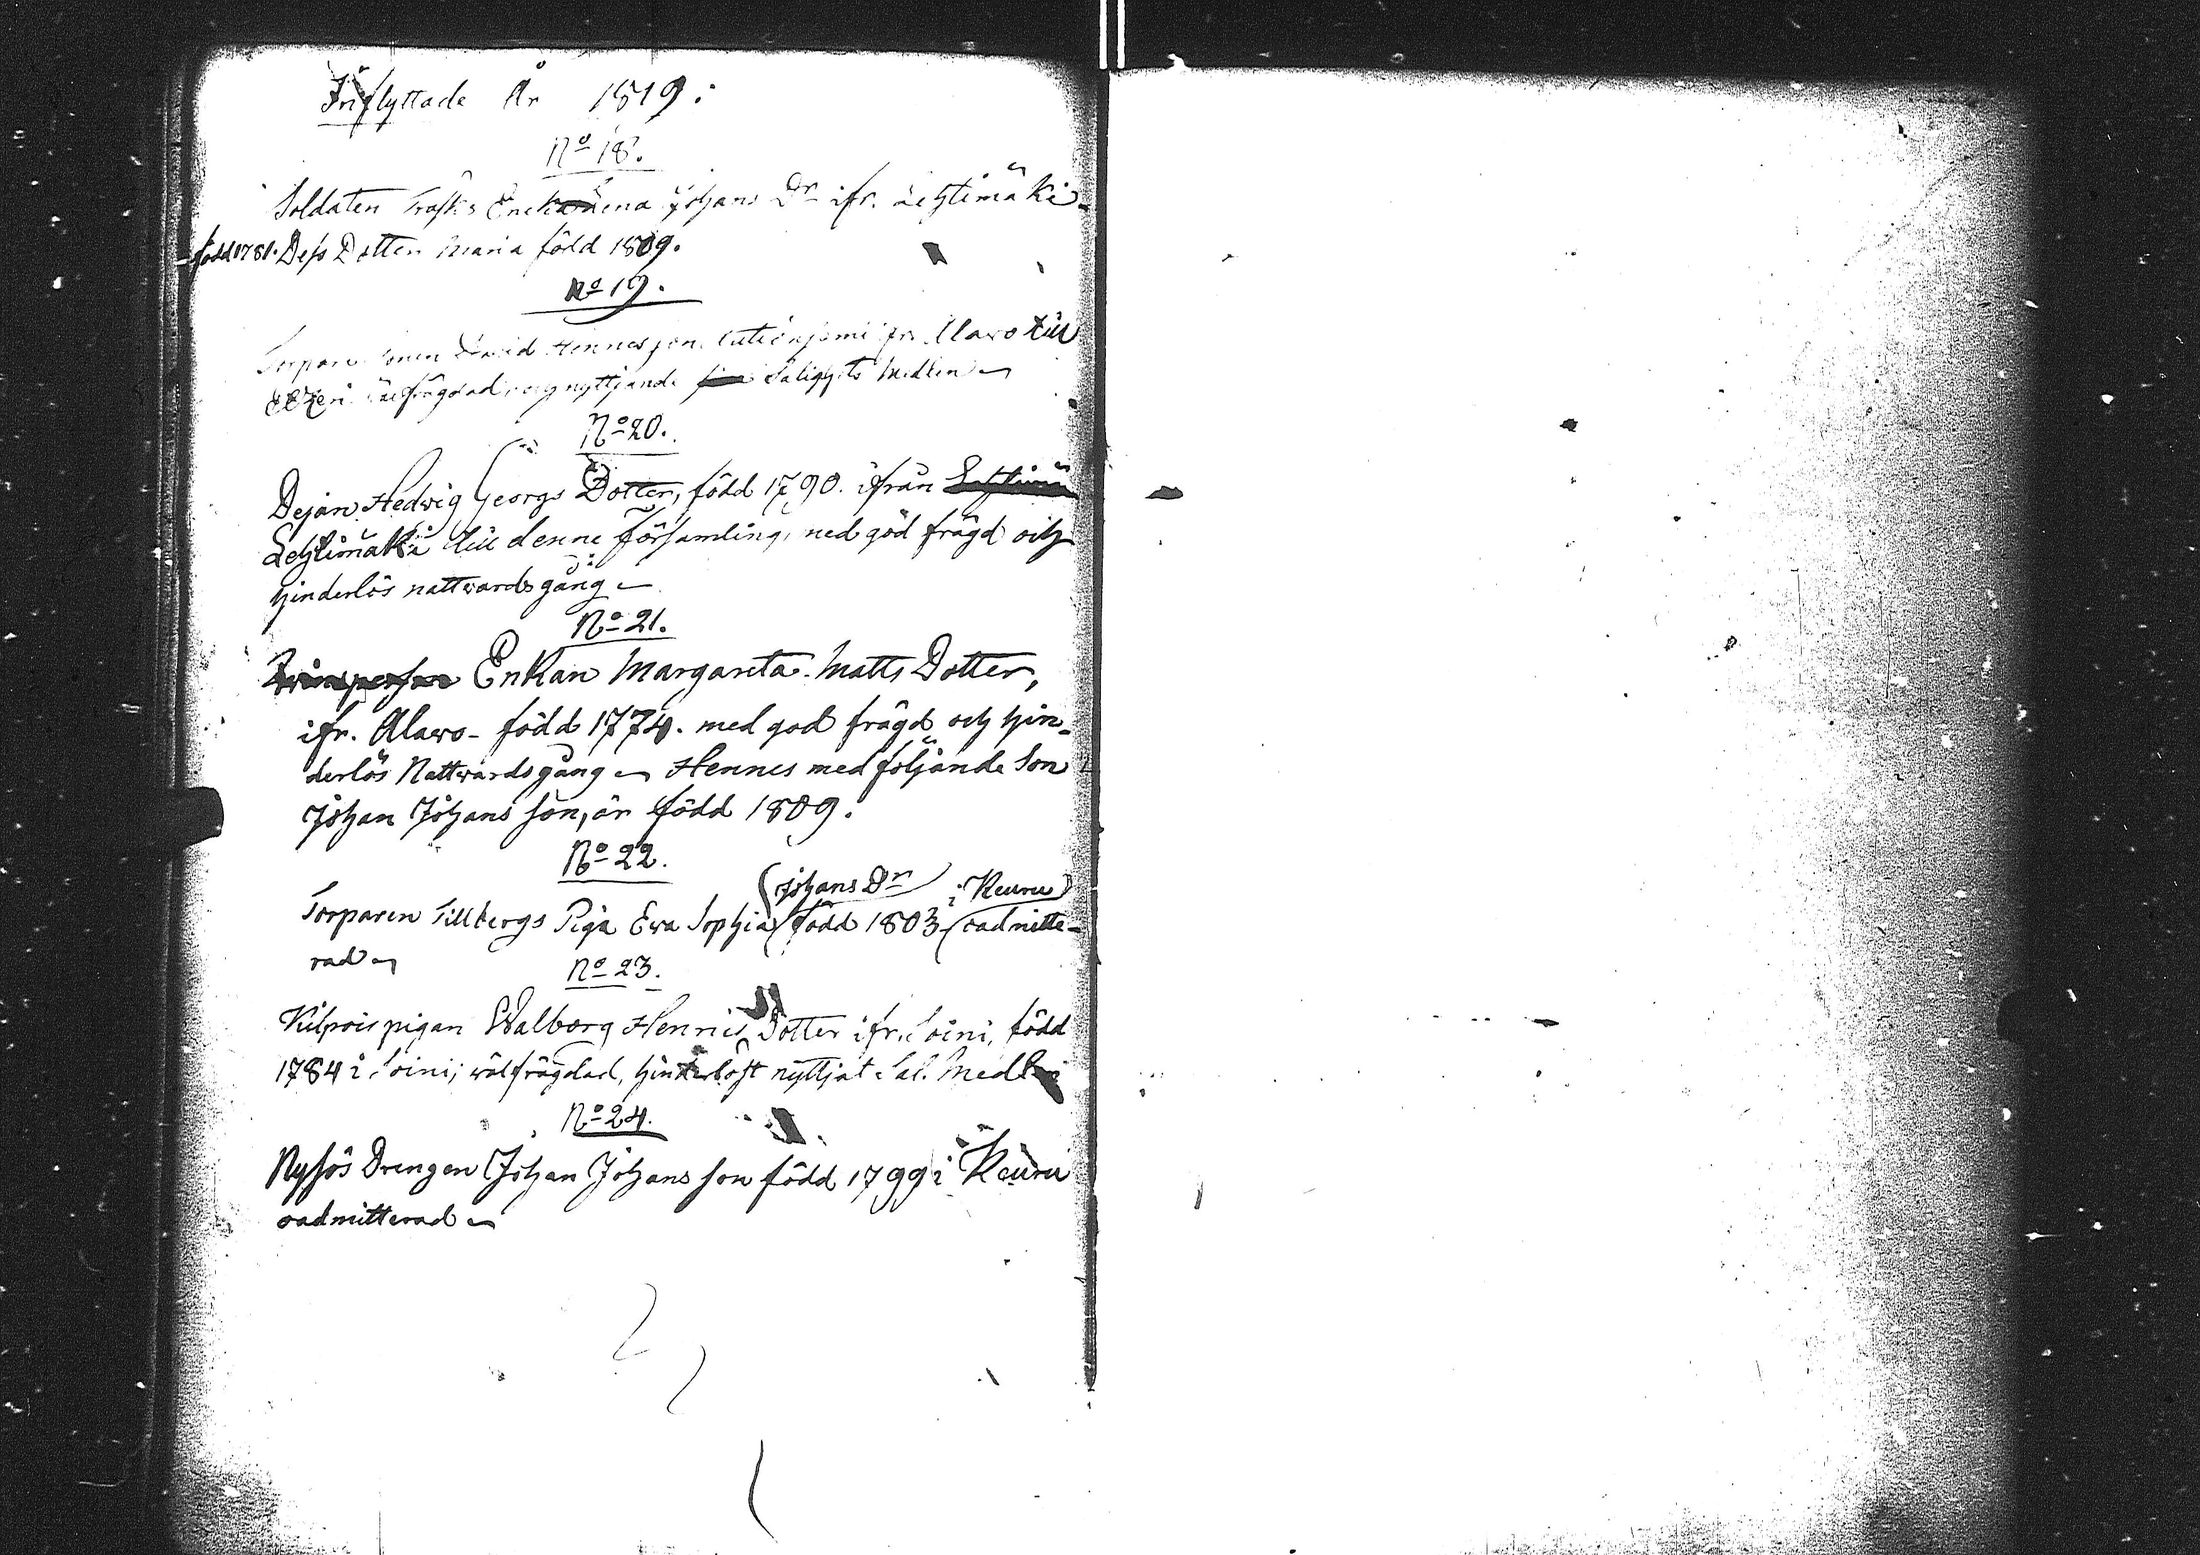 Inflyttade År 1819:
No 18.
Soldaten Trasks Enka Lena Johans Dr ifr. Lehtimäki
född 1781. Dess Dotter Maria född 1809.
No 19.
Torpare sonen David Hennesson ifr. Alawo till
Etzeri wälfrägdad, och nyttjande Salighets Medlen
No 20.
Dejan Hedwig Georgs Dotter, född 1790. ifrån
Lehtimäki till denne Församling, med god frägd och
hinderlös nattwardsgång
No 21.
Enkan Margareta Matts Dotter,
ifr. Alawo - född 1774. med god frägd och hin-
derlös Nattwardsgång Hennes medföljande Son
Johan Johans son, är född 1809.
No 22.
(Johans Dr) i Keuru)
Torparen Tillbergs Piga Ewa Sophia född 1803 oadmitte-
rad
No 23.
Kilpois pigan Walborg Henrics Dotter ifr. Soini, född
1784 i Soini; wälfrägdad, hinderlöst nyttjat Sal. Medlen
No 24.
Nysös Drengen Johan Johans son född 1799 i Keuru
oadmitterad